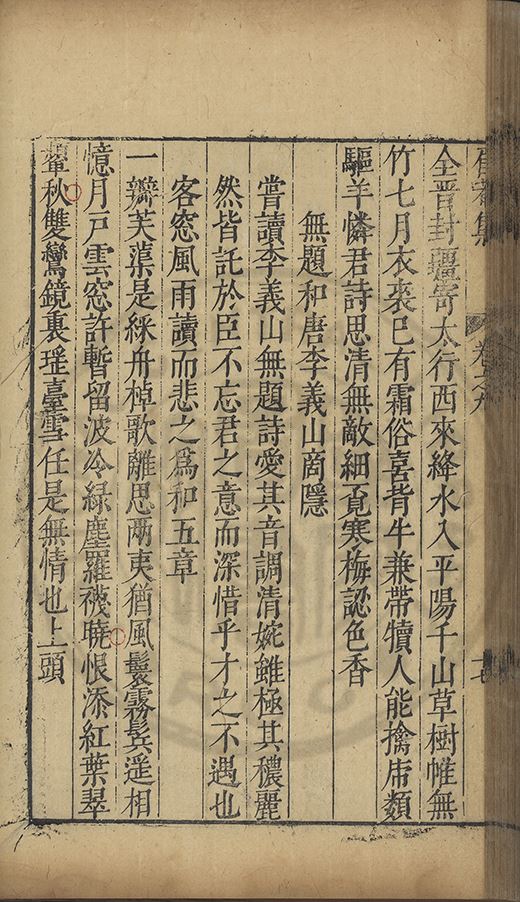 眉菴集 卷之九
全晉封疆寄太行西來絳水入平陽千山草樹惟無
竹七月衣裘已有霜俗喜背牛兼帶犢人能擒乕類
驅羊憐君詩思清無敵細覓寒梅認色香
無題和唐李義山商隱
嘗讀李義山無題詩愛其音調清婉雖極其穠麗
然皆託於臣不忘君之意而深惜乎才之不遇也
客窓風雨讀而悲之爲和五章
一瓣芙蕖是綵舟棹歌離思兩夷猶風鬟霧鬂遥相
憶月戸雲窓許暫留波冷綠塵羅襪曉恨添紅葉翠
顰秋雙鸞鏡裏瑤臺雪任是無情也上頭